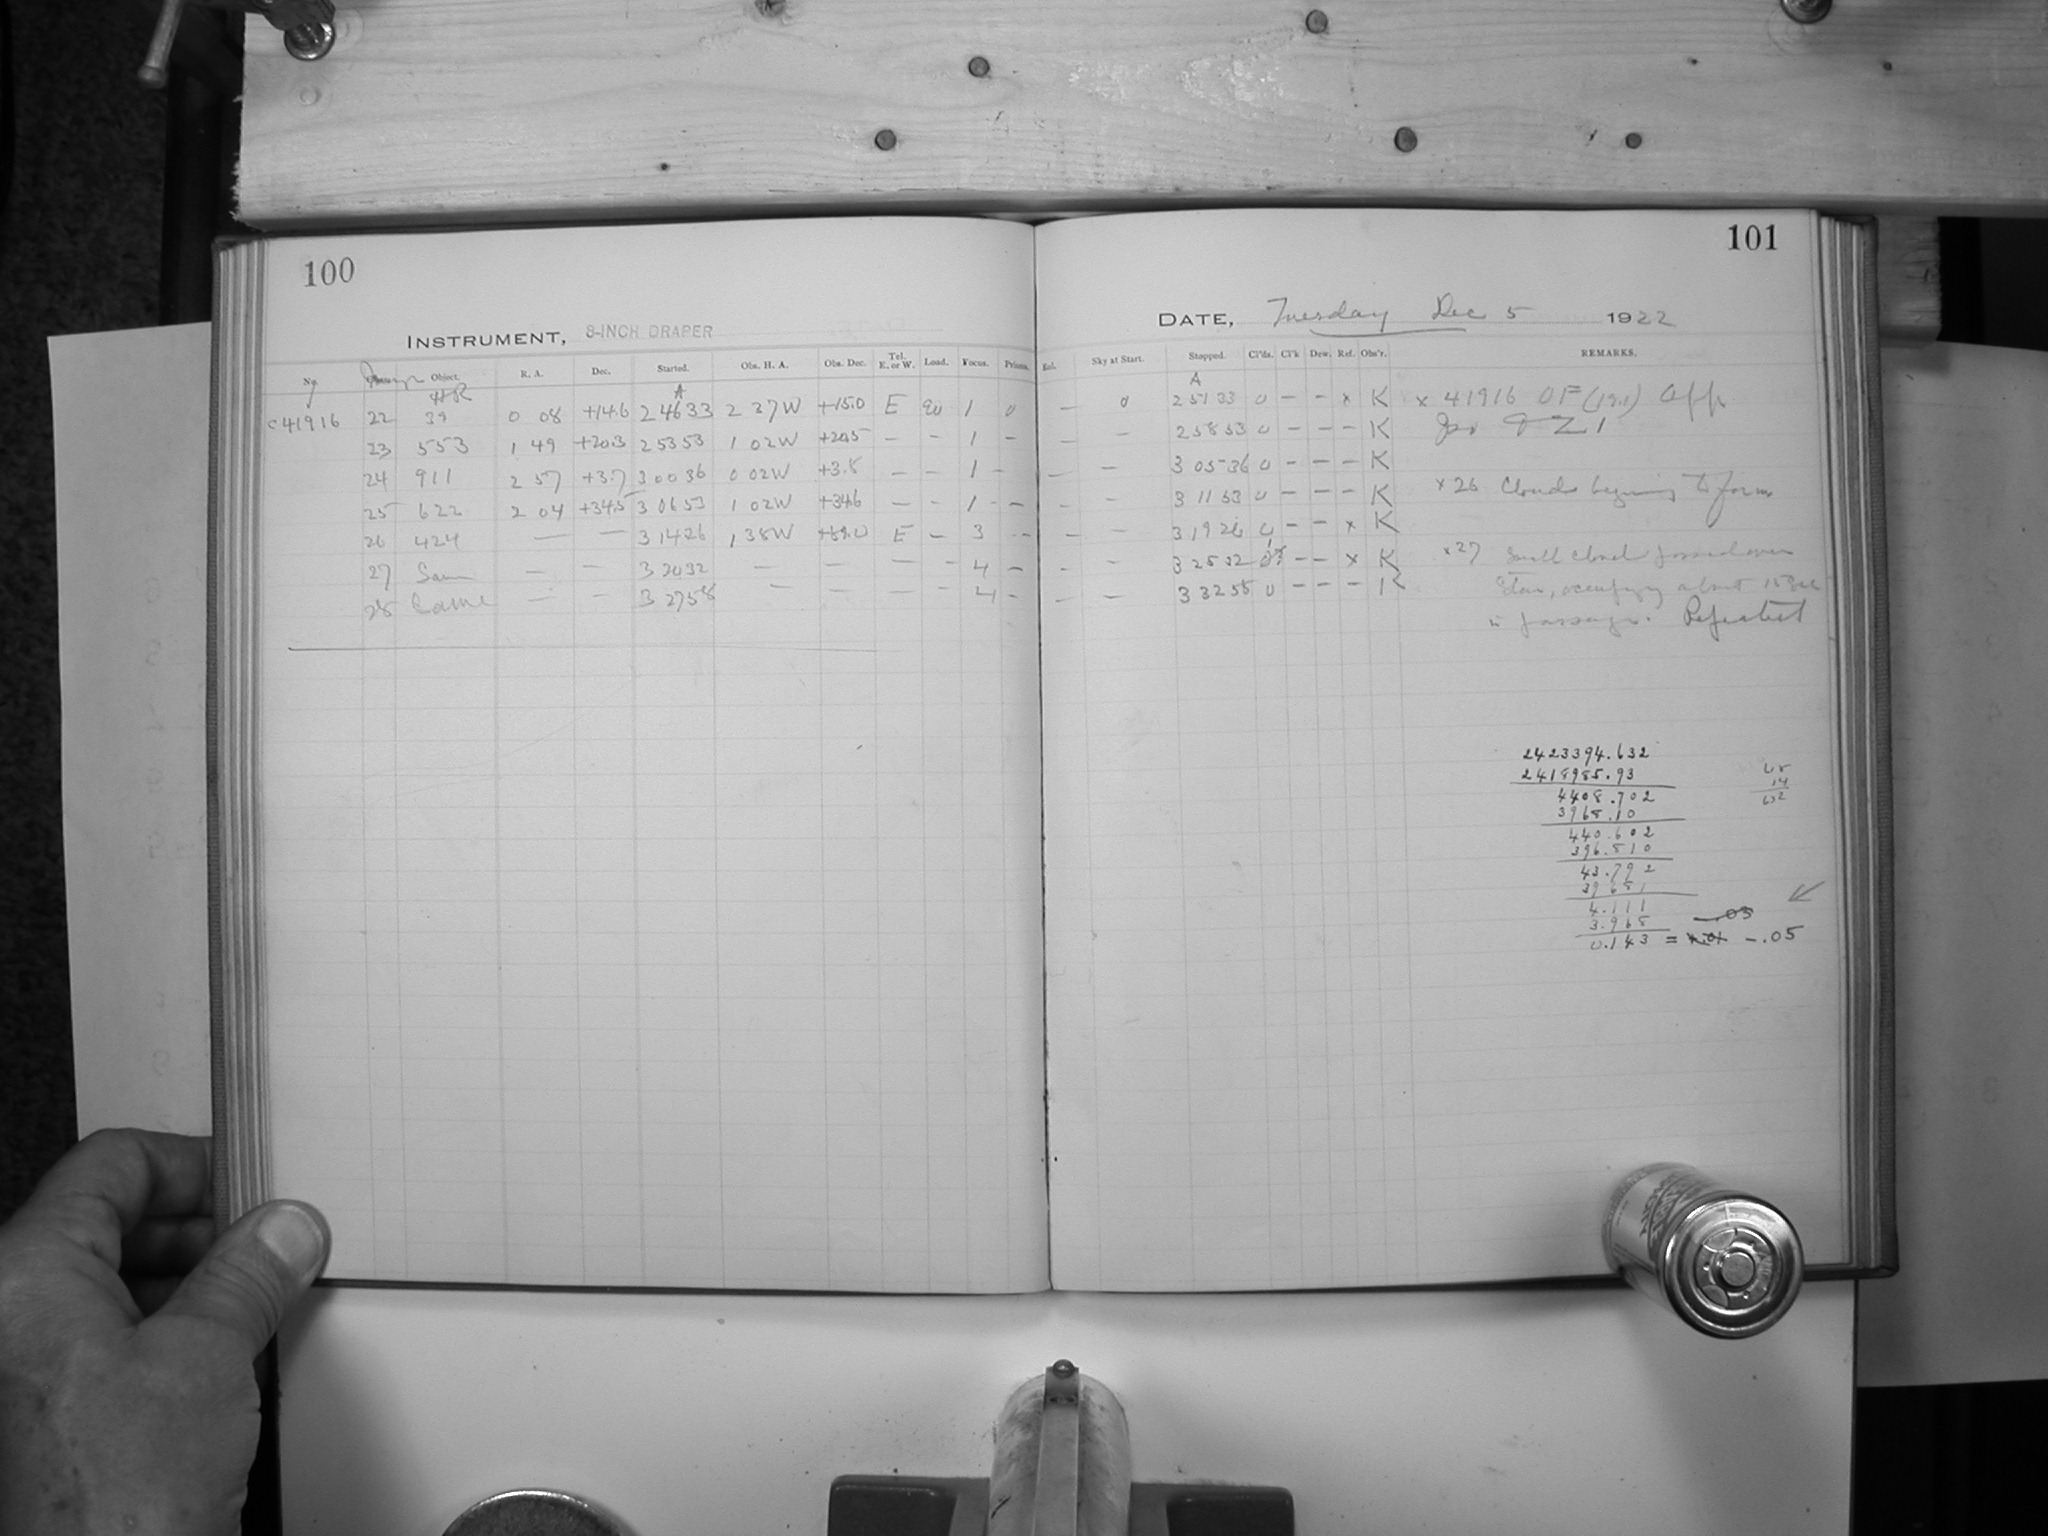 100
INSTRUMENT, 8-INCH DRAPER
No. Object. R. A. Dec. Started. Obs. H. A. Obs. Dec. Tel. E. or W. Load. Focus. Prisms.
HR A
c41916 22 39 0 08 +14.6 2 46 33 2 37W +15.0 E 90 1 0
23 553 1 49 +20.3 2 53 53 1 02W +20.5 — — 1 —
24 911 2 57 +3.7 3 00 36 0 02W +3.8 — — 1 —
25 622 2 04 +34.5 3 06 53 1 02W +34.6 — — 1 —
26 424 — — 3 14 26 1 38W +89.0 E — 3 —
27 Same — — 3 20 32 — — — — 4 —
28 Same — — 3 27 58 — — — — 4 —
101
DATE, Tuesday Dec 5 1922
Exl. Sky at Start. Stopped. Cl'ds. Cl'k Dew. Ref. Obs'r. REMARKS.
A
— 0 2 51 33 0 — — x K x 41916 OF (19.1)
— — 2 58 53 0 — — — K
— — 3 05 36 0 — — — K
— — 3 11 53 0 — — — K x26 Clouds beginning to form
— — 3 19 26 0 — — x K
— — 3 25 32 — — x K x27 Small cloud passed over
— — 3 32 58 0 — — — K Star, occupying about 15 Sec
in passage. Repeated
2423394.632
2418985.93
4408.702
3965.10
440.602
396.510
43.792
39 651
4.111
3.965
0.143 = -.05
.03
14
632